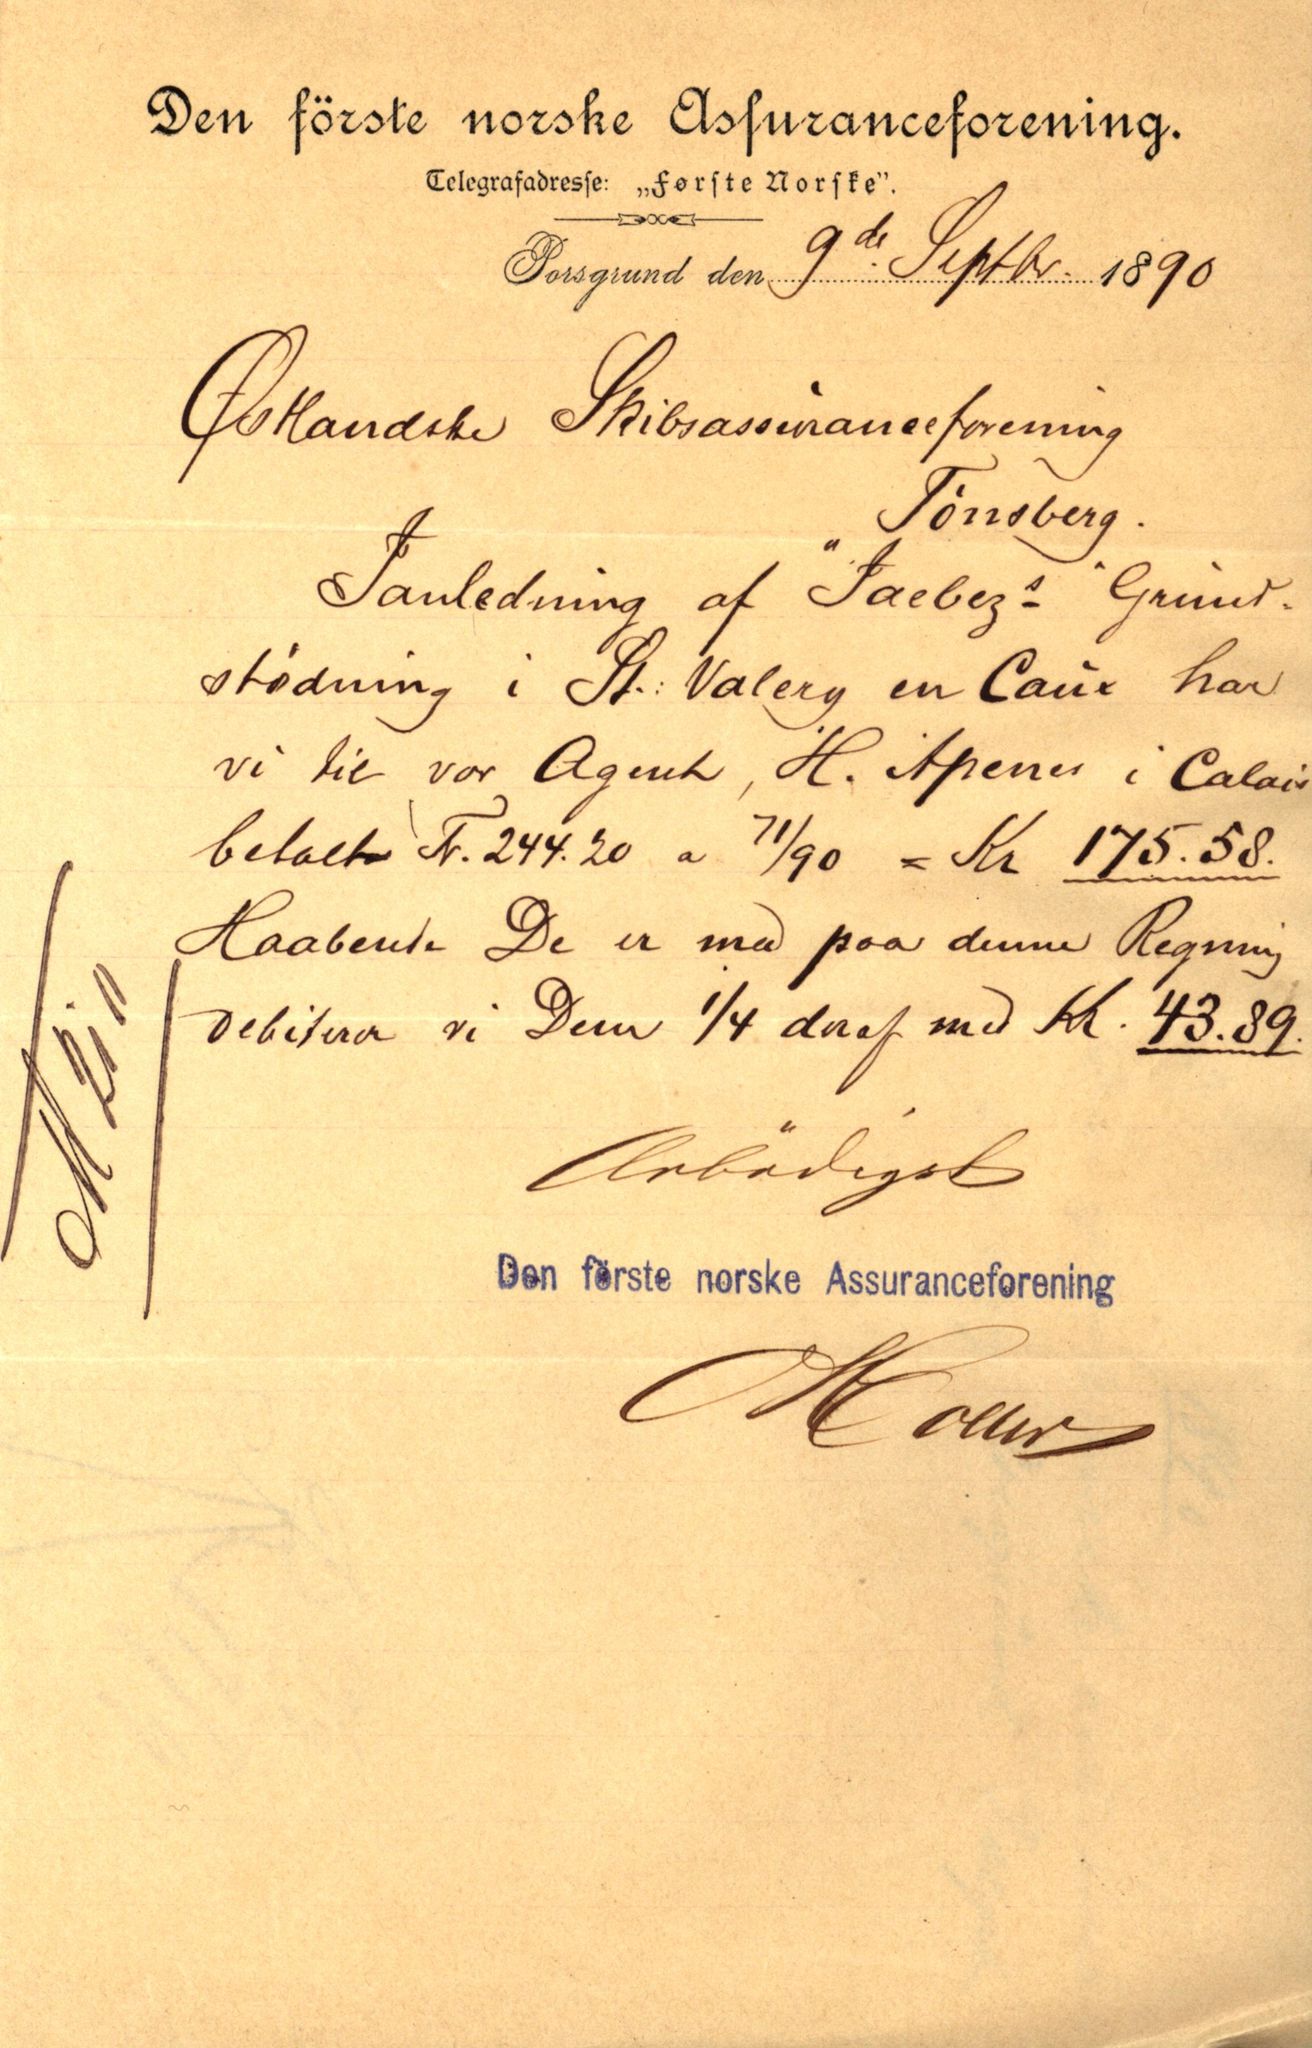 Den förste norske Assuranceforening.
Telegrafadresse: „Første Norske".
Porsgrund den 9de Septbr. 1890
Østlandske Skibsassuranceforening
Tönsberg.
Janledning af "Jaebez's" Grund-
stødning i St: Valery en Caux har
vi til vor Agent, H. Apenes i Calais
betalt Fr. 244.20 a 71/90 = Kr 175.58.
Haabende De er med paa denne Regning
debiterer vi Dem 1/4 deraf med Kr. 43.89.
Ærbödigst
Den förste norske Assuranceforening